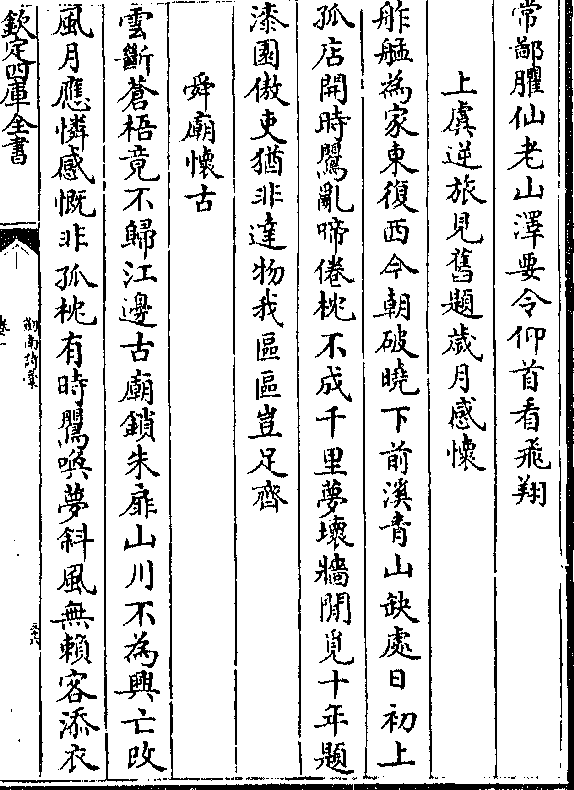 常鄙臞仙老山澤要令仰首看飛翔
上虞逆旅見舊題歲月感懷
舴艋為家東復西今朝破曉下前溪青山缺處日初上
孤店開時鸎亂啼倦枕不成千里夢壞牆閒覓十年題
漆園傲吏猶非達物我區區豈足齊
舜廟懷古
雲斷蒼梧竟不歸江邊古廟鎖朱扉山川不為興亡改
風月應憐感慨非孤枕有時鸎喚夢斜風無賴客添衣
欽定四庫全書
劍南詩稾
卷一